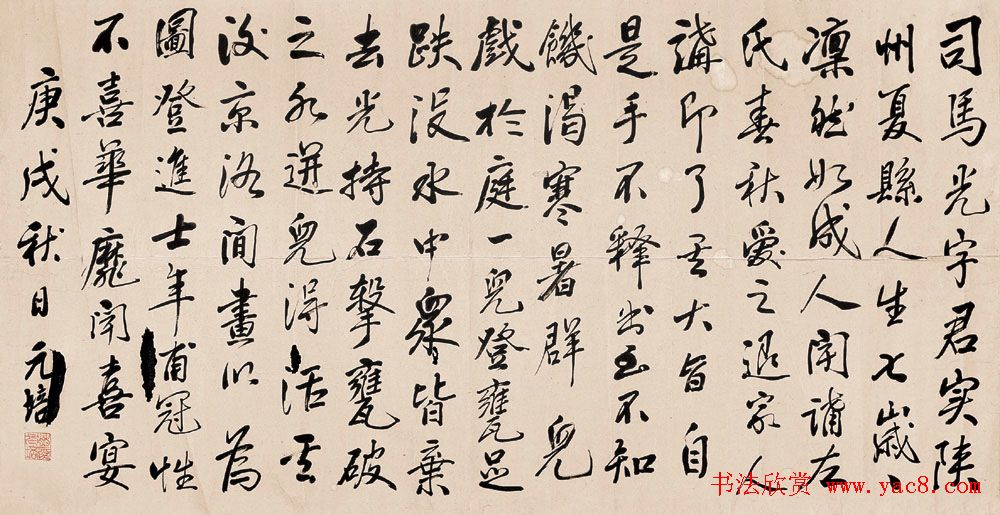 司馬光字君实陕
州夏縣人生七歲、
凛然如成人闻誦左
氏春秋愛之退家人
講即了其大旨自
是手不釋书至不知
饑渴寒暑群兒
戲於庭一兒登甕足
跌没水中眾皆棄
去光持石擊甕破
之水迸兒得活其
後京洛间畫以為
圖登進士年甫冠性
不喜華靡闻喜宴
庚戌秋日元培
书法欣赏 www.yac8.com